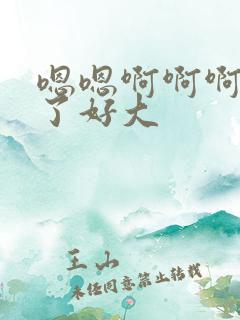 嗯嗯啊啊啊
了好大
王山
未经同意禁止转载